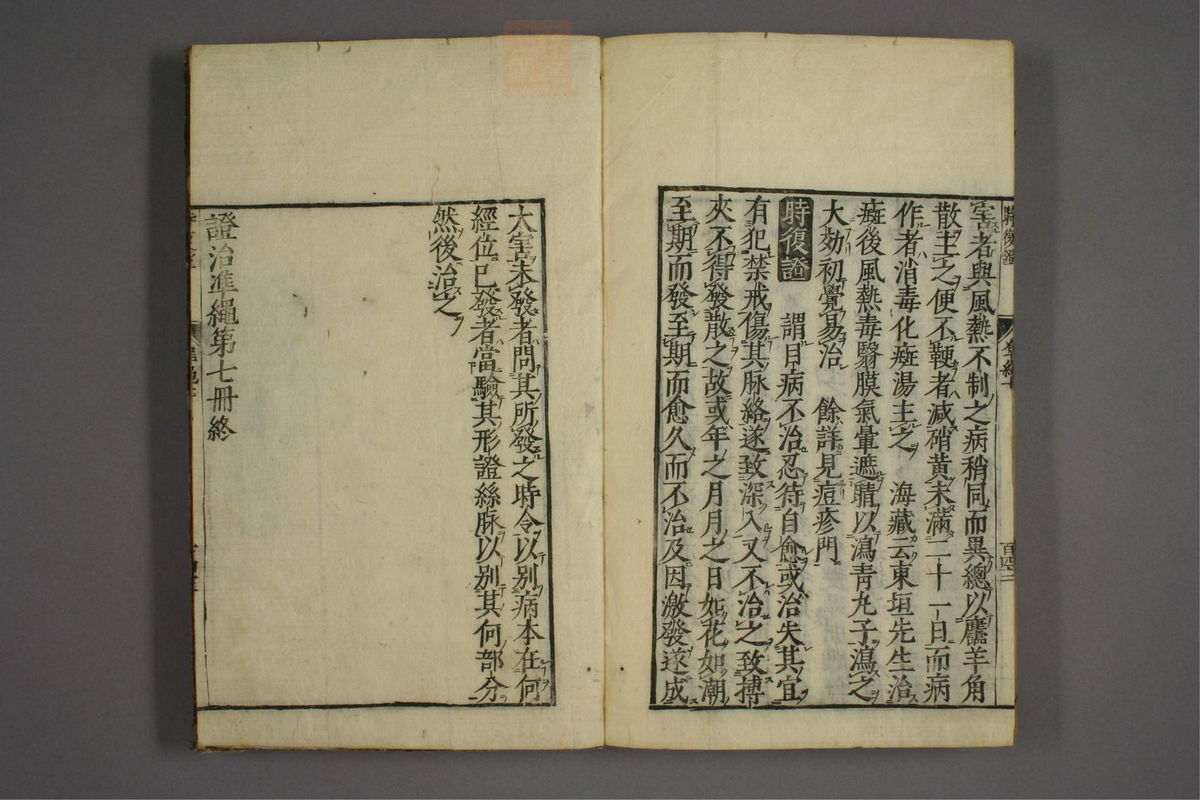 害者與風熱不制之病稍同而異總以廳羊角
散主之便不鞕者減硝黃未滿二十一日而病
作者消毒化癍湯主之　海藏云東垣先生治
癍後風熱毒翳膜氣暈遮睛以瀉青丸子瀉之
大効初覺易治　餘詳見痘疹門
時復證
謂目病不治忍待自愈或治失其宜
有犯禁戒傷其脉絡遂致深入又不治之致搏
夾不得發散之故或年之月月之日如花如潮
至期而發至期而愈久而不治及因激發遂成
大害未發者問其所發之時令以別病本在何
經位已發者當驗其形證絲脉以別其何部分
然後治之
證治準繩第七冊終